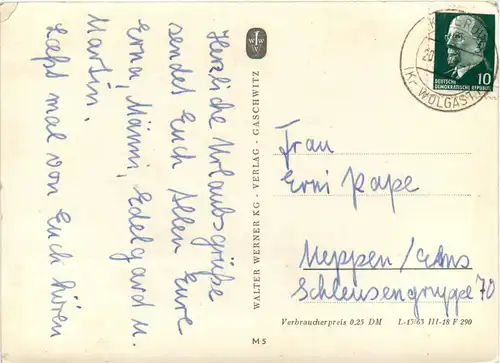 Herzliche Urlaubsgrüße
sendet Euch Allen Eure
Erna, Männi, Edelgard u.
Martin.
Laßt mal von Euch hören
W
WW
WALTER WERNER KG - VERLAG - GASCHWITZ
M 5
10
DEUTSCHE
DEMOKRATISCHE REPUBLIK
(Kr. WOLGAST)
Frau
Erni Pape
Meppen/Ems
Schleusengruppe 70
Verbraucherpreis 0,25 DM
III-18 F 290